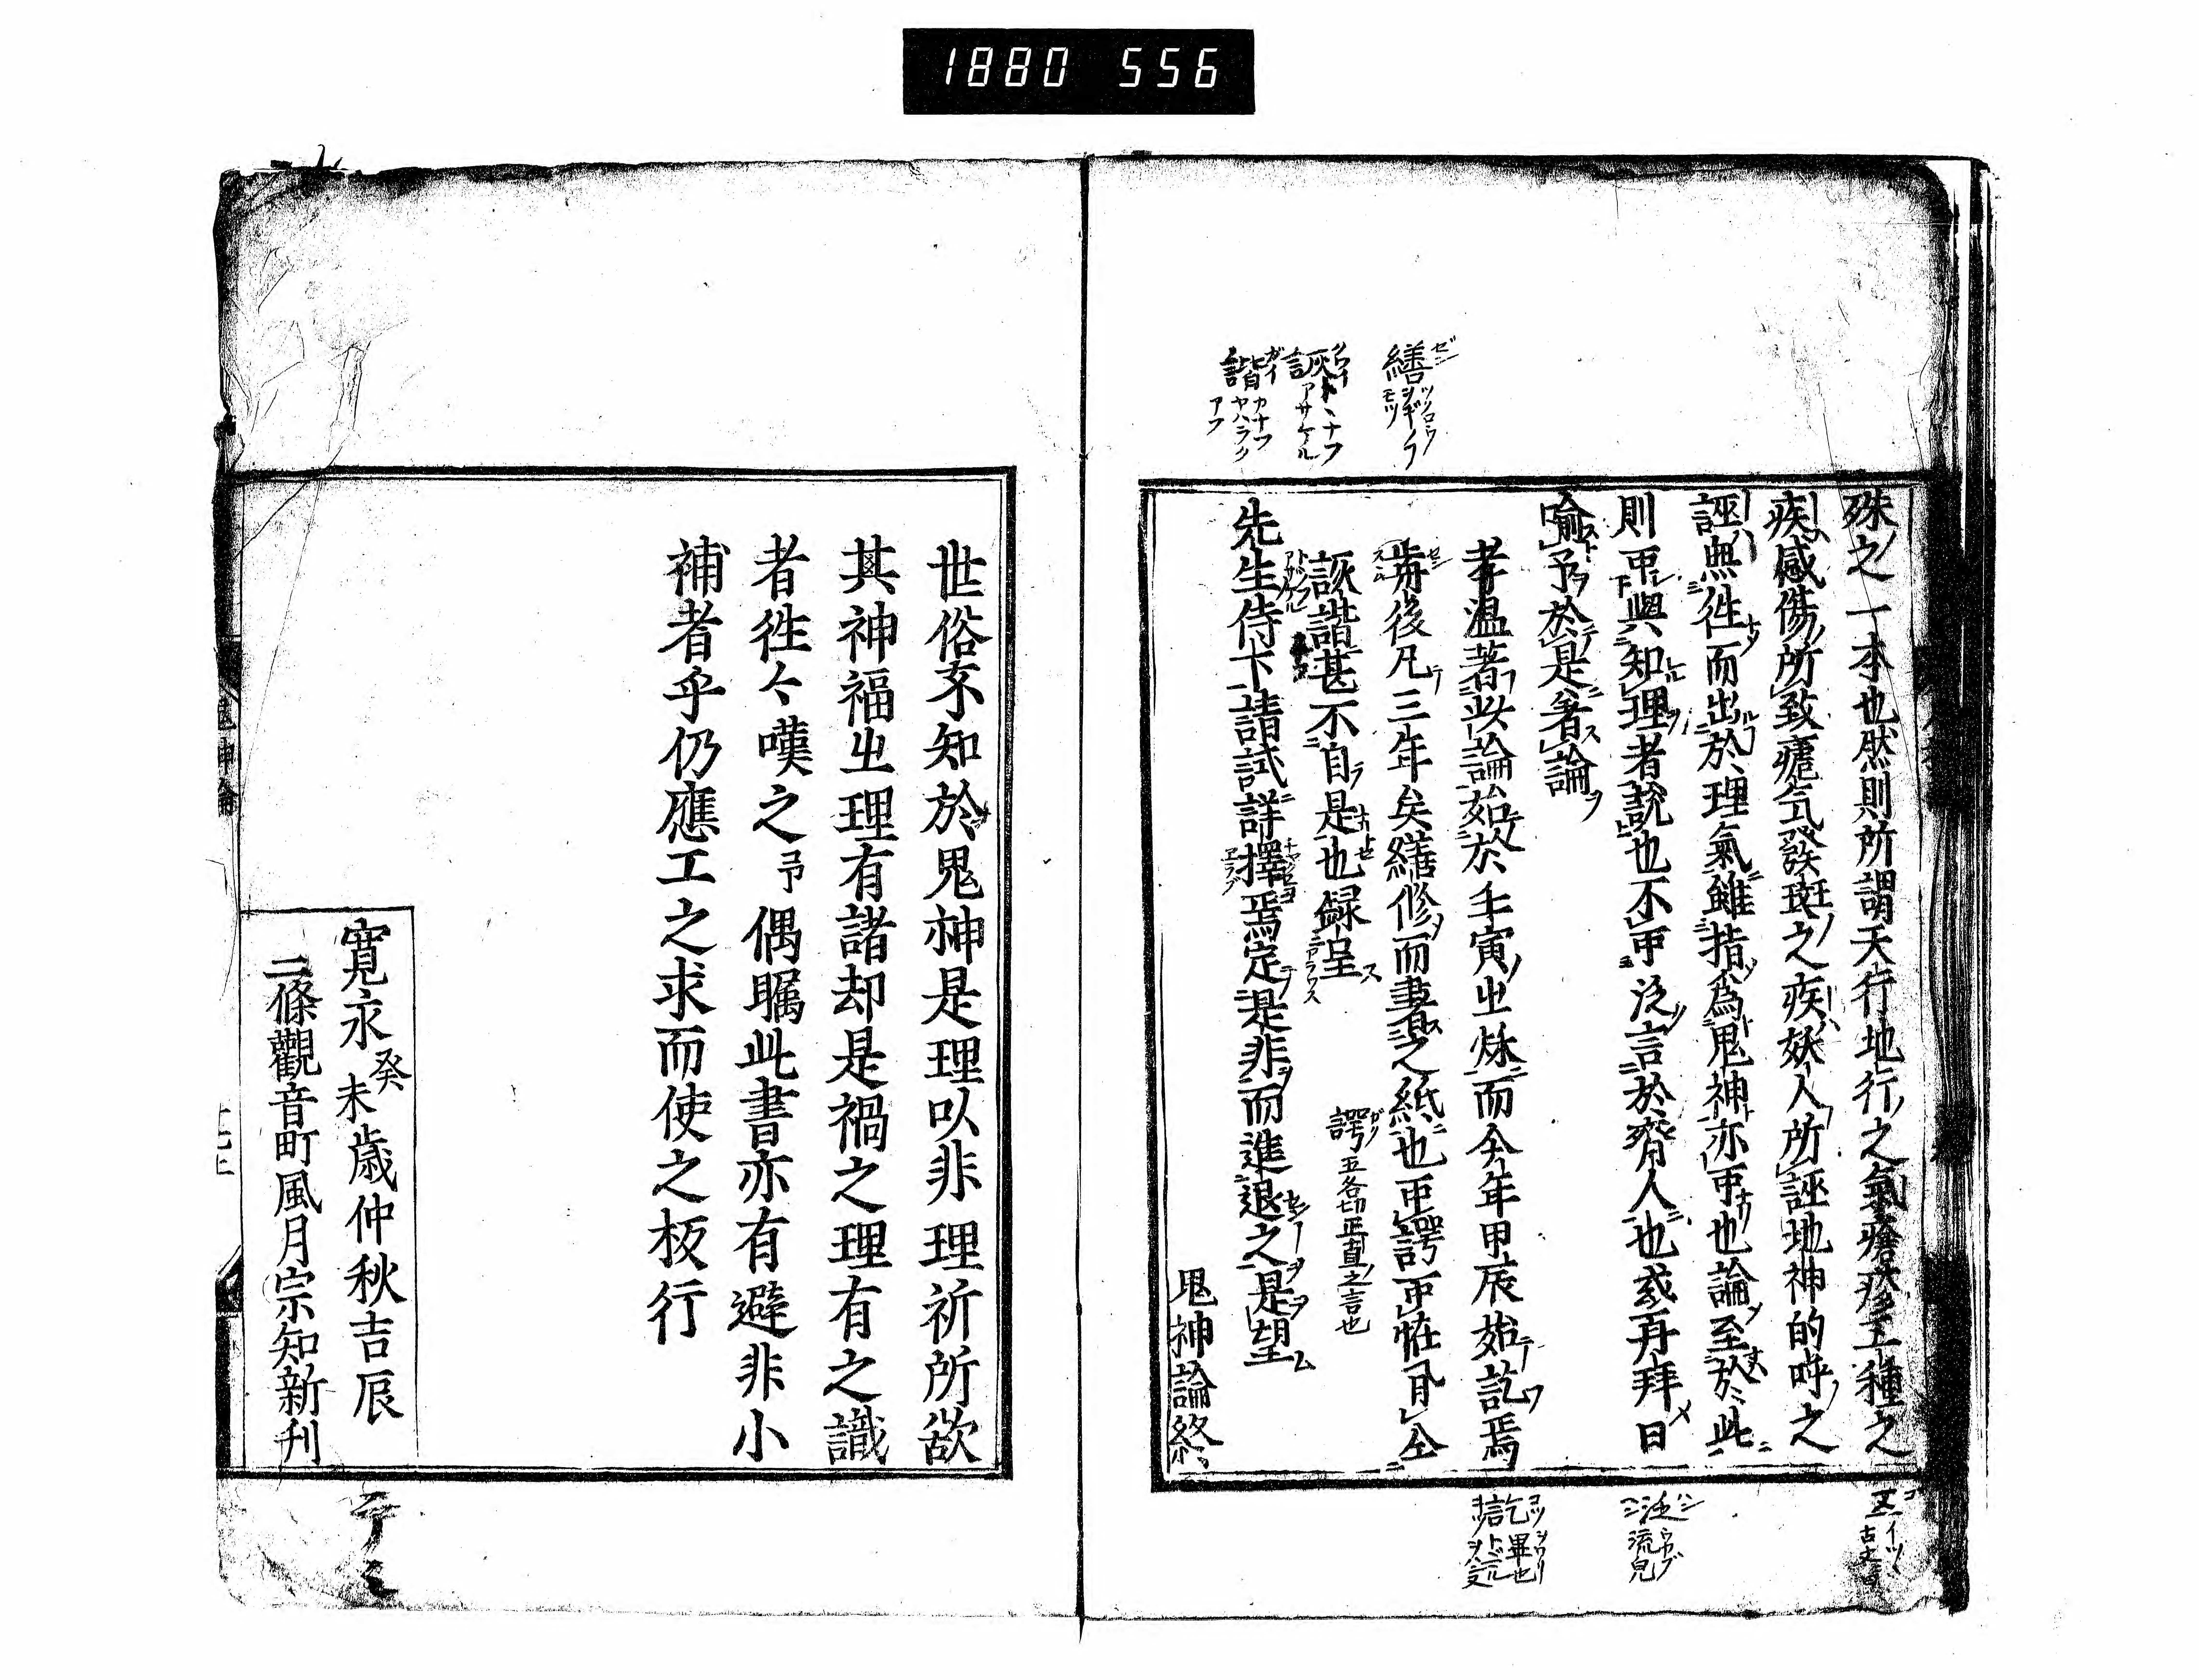 1880 556
殊之一本也然則所謂天行地行之氣瘡疹五種之
疾感傷所致瘧気發斑之疾妖人所誣地神的呼之
誣無徃而出於理氣雖指為鬼神亦可也論至於此
則可與知理者説也不可泛言於齊人也或再拜曰
喩予於是著論
孝温著此論始於壬寅㞢秌而今年甲辰始訖焉
歬後凡三年矣繕修而書之紙也可諤可恠㒵仝
詼諧甚不自是也録呈
先生侍下請試詳擇焉定是非而進退之是望
鬼神論終
繕 ゼン ツクロウ ヲギノフ モツ
詼 クワイ トヽナフ アサケル
諧 カイ カナフ ヤハラク アフ
諤 五各切正直之言也
泛 ハン ウカブ 流皃
訖 畢也
世俗不知於鬼神是理以非理祈所欲
其神福㞢理有諸却是禍之理有之識
者徃々嘆之予偶矚此書亦有避非小
補者乎仍應工之求而使之板行
寛永癸未歳仲秋吉辰
二條觀音町風月宗知新刊